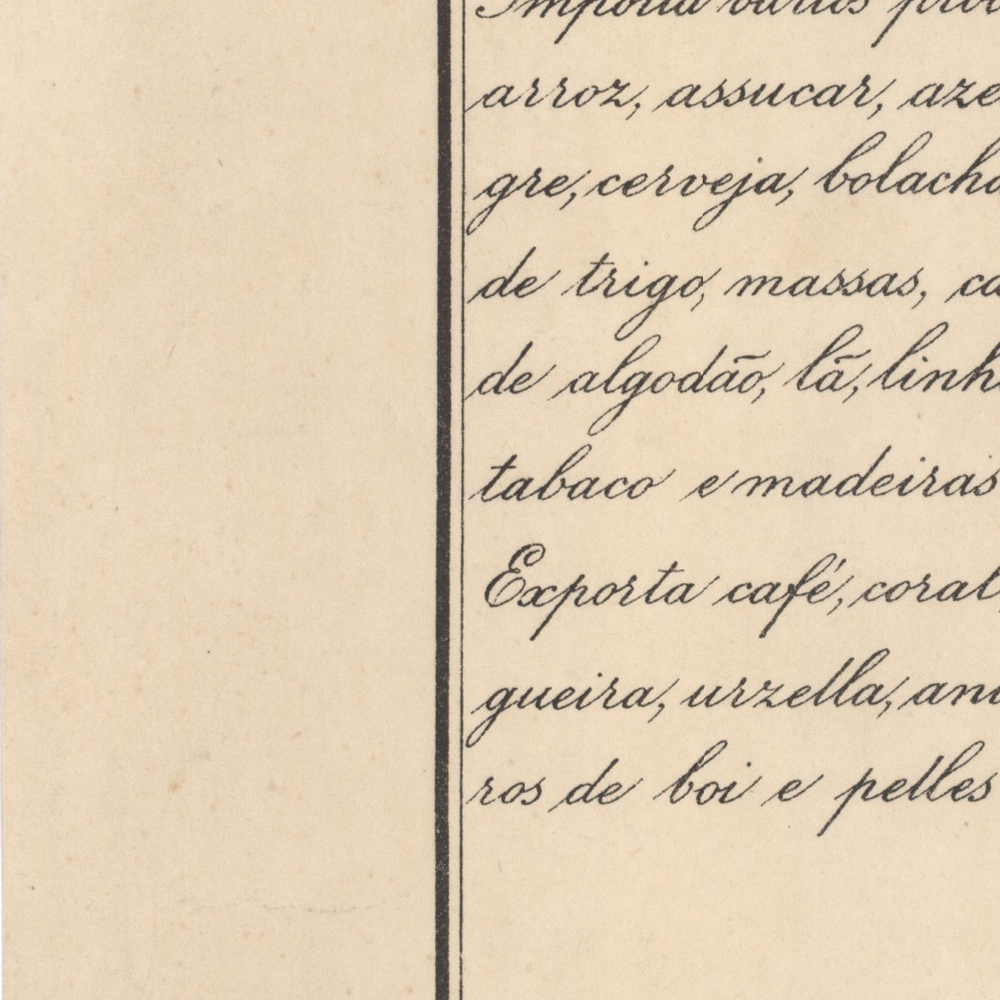 Importa varios
arroz, assucar, aze
gre, cerveja, bolacha
de trigo, massas, ca
de algodão, lã, linh
tabaco e madeiras
Exporta café, coral,
gueira, urzella, ani
ros de boi e pelles